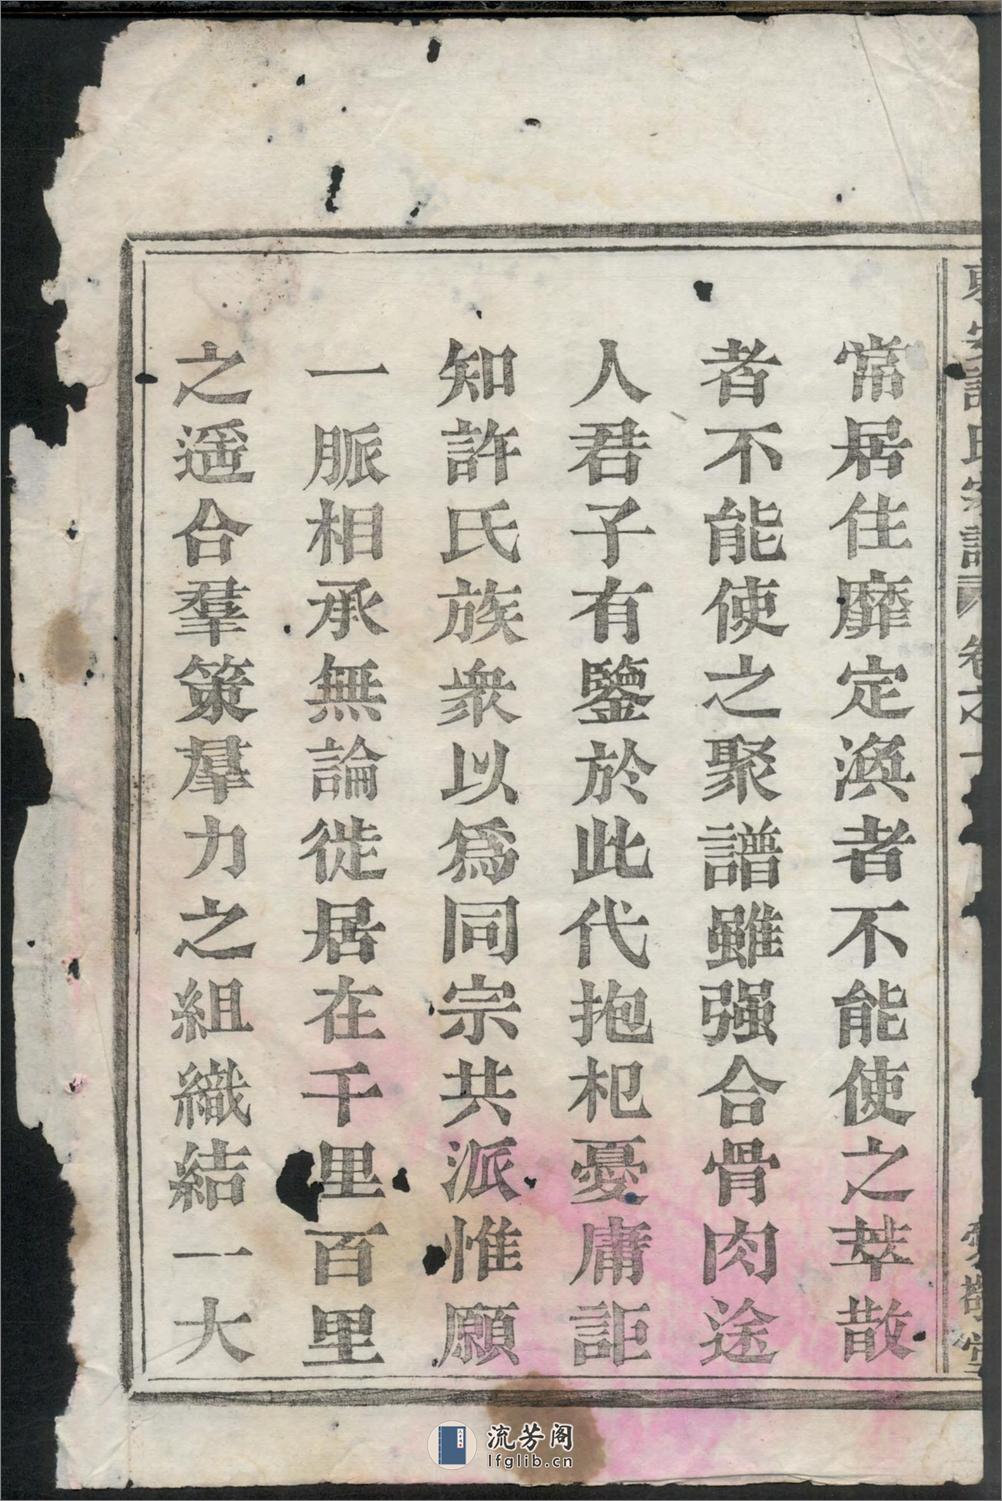 常居住靡定渙者不能使之萃散
者不能使之聚譜雖强合骨肉途
人君子有鑒於此代抱杞憂庸詎
知許氏族衆以爲同宗共派惟願
一脈相承無論徙居在千里百里
之遥合羣策羣力之組織結一大
氏宗譜 卷之一
敬堂
流芳阁
lfglib.cn